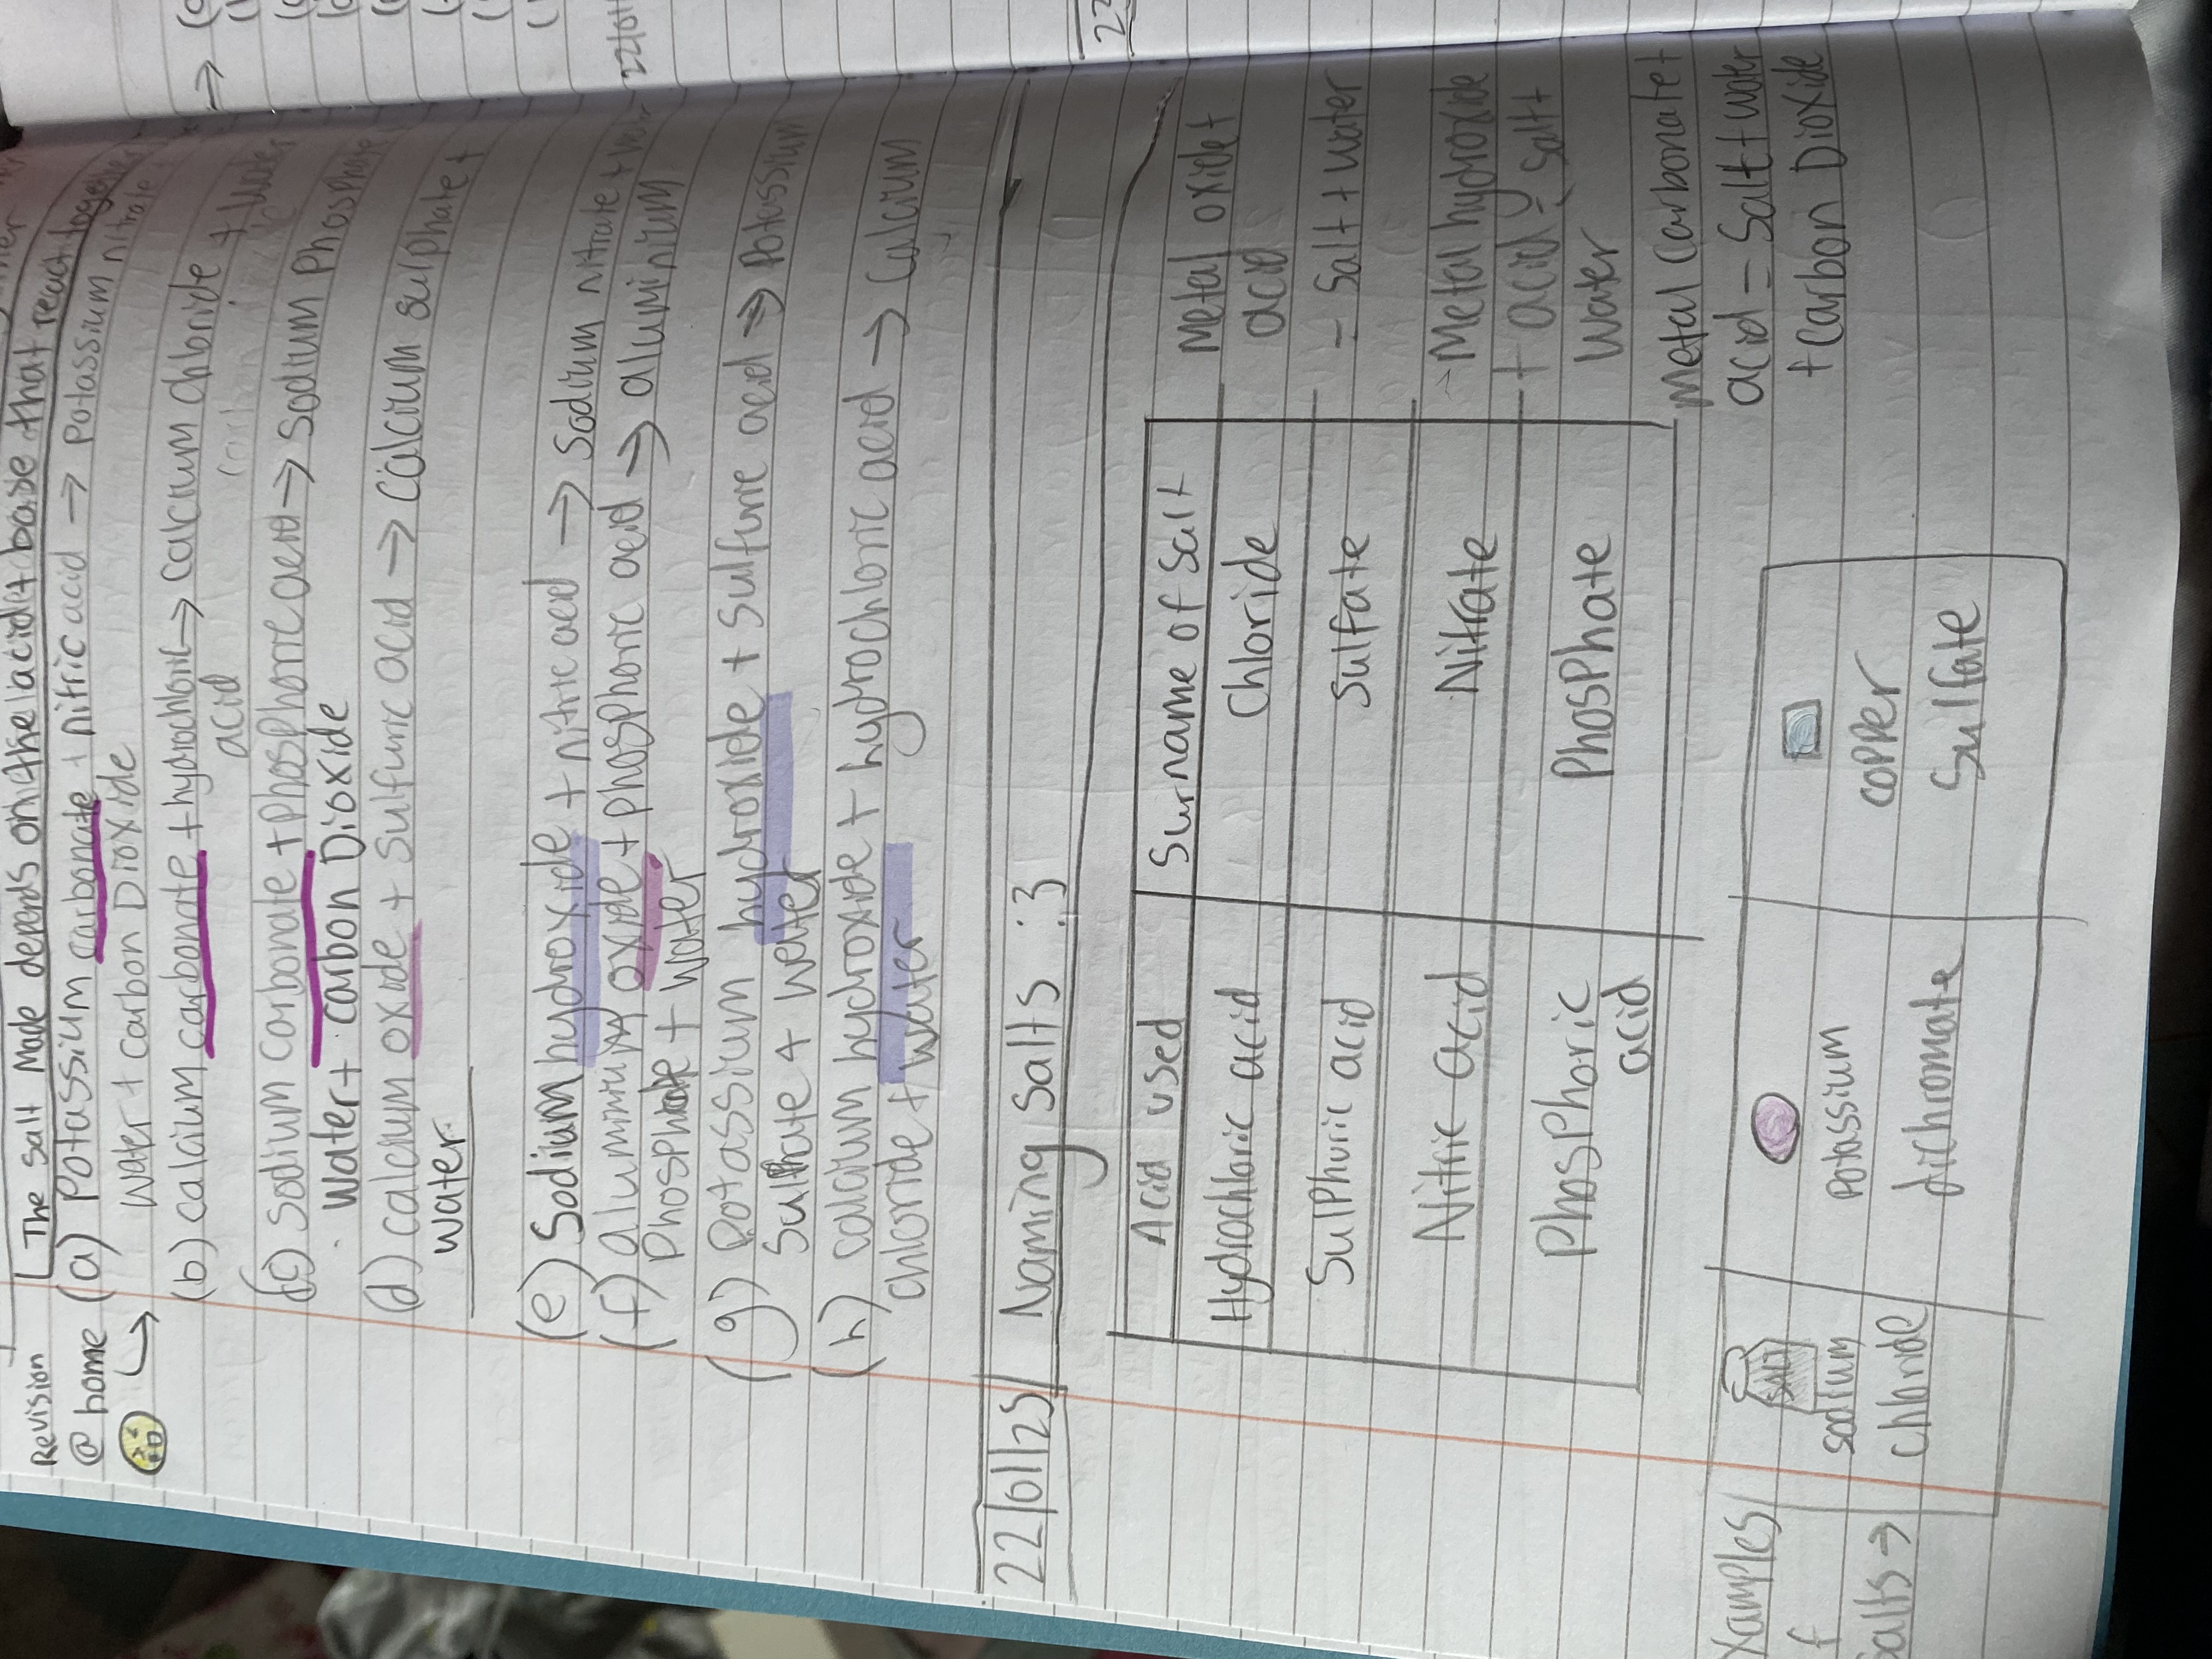 Revision
@ home
The salt Made depends on the acid + base that react together
(a) Potassium carbonate + nitric acid → potassium nitrate +
water + carbon Dioxide
(b) calcium carbonate + hydrochloric → calcium chloride + water
acid
carbon
(c) sodium carbonate + phosphoric acid → sodium phosphate
water + carbon Dioxide
(d) calcium oxide + sulfuric acid → calcium sulphate +
water
(e) Sodium hydroxide + nitric acid → sodium nitrate + water
(f) aluminium oxide + phosphoric acid → aluminium
Phosphate + water
(g) potassium hydroxide + sulfuric acid → potassium
Sulphate + water
(h) calcium hydroxide + hydrochloric acid → Calcium
chloride + water
22/01/25 Naming Salts :3
Acid used
Surname of Salt
Hydrochloric acid
Chloride
Sulphuric acid
Sulfate
Nitric acid
Nitrate
Phosphoric
acid
Phosphate
Metal oxide +
acid
= Salt + water
Metal hydroxide
+ acid = salt +
water
Metal Carbonate +
acid = Salt + water
+ Carbon Dioxide
xamples
f
salts →
SALT
sodium
chloride
potassium
dichromate
copper
Sulfate
22/01
23